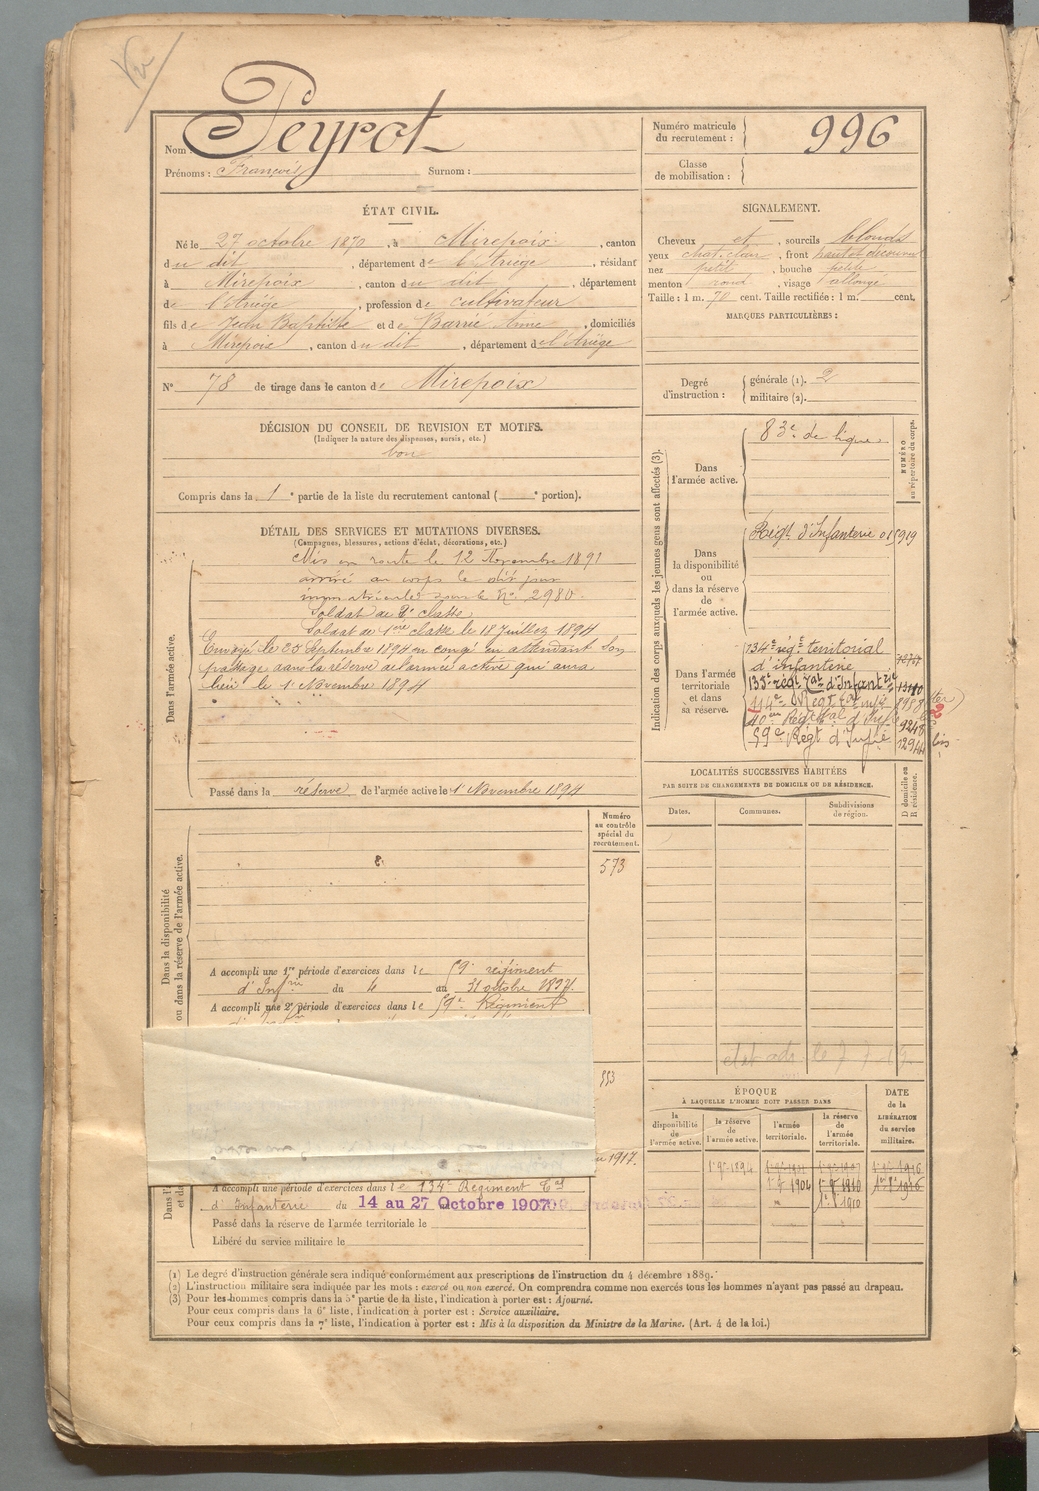 Vu
Nom : Peyrot
Prénoms : François Surnom :
Numéro matricule du recrutement : 996
Classe de mobilisation :
ÉTAT CIVIL.
Né le 27 octobre 1870, à Mirepoix, canton
du dit, département de l'Ariège, résidant
à Mirepoix, canton du dit, département
de l'Ariège, profession de cultivateur
fils de Jean Baptiste et de Barrié Anne, domiciliés
à Mirepoix, canton du dit, département de l'Ariège
N° 78 de tirage dans le canton de Mirepoix
SIGNALEMENT.
Cheveux et, sourcils blonds
yeux chat. clair, front haut et découvert
nez petit, bouche petite
menton rond, visage allongé
Taille : 1 m. 70 cent. Taille rectifiée : 1 m. cent.
MARQUES PARTICULIÈRES :
Degré d'instruction : générale (1). 2
militaire (2).
DÉCISION DU CONSEIL DE REVISION ET MOTIFS.
(Indiquer la nature des dispenses, sursis, etc.)
bon
Compris dans la 1e partie de la liste du recrutement cantonal ( e portion).
DÉTAIL DES SERVICES ET MUTATIONS DIVERSES.
(Campagnes, blessures, actions d'éclat, décorations, etc.)
Dans l'armée active.
Mis en route le 12 Novembre 1891
arrivé au corps le dit jour
immatriculé sous le N° 2980.
Soldat de 2e classe
Soldat de 1ère classe le 18 Juillet 1894
Envoyé le Septembre 1894 en congé en attendant son
passage dans la réserve de l'armée active qui aura
lieu le 1er Novembre 1894
Passé dans la réserve de l'armée active le 1er Novembre 1894
Indication des corps auxquels les jeunes gens sont affectés (3).
NUMÉRO au répertoire du corps.
Dans l'armée active.
83e de ligne
Dans la disponibilité ou dans la réserve de l'armée active.
Régt d'Infanterie 01919
Dans l'armée territoriale et dans sa réserve.
134e régt territorial
d'infanterie
135e régt Tal d'Infanterie 13180
Régt tal
Régt tal d'Inf 9248
59e Régt d'Infie 12944 bis
LOCALITÉS SUCCESSIVES HABITÉES
PAR SUITE DE CHANGEMENTS DE DOMICILE OU DE RÉSIDENCE.
Dates. Communes. Subdivisions de région. D domicile ou R résidence.
Dans la disponibilité ou dans la réserve de l'armée active.
Numéro au contrôle spécial du recrutement.
573
A accompli une 1re période d'exercices dans le 59e régiment
d'Infrie du 4 au 31 octobre 1897
A accompli une 2e période d'exercices dans le 59e Régiment
553
1917.
A accompli une période d'exercices dans le 134e Régiment Tal
d'Infanterie du 14 au 27 Octobre 1907
Passé dans la réserve de l'armée territoriale le
Libéré du service militaire le
ÉPOQUE
À LAQUELLE L'HOMME DOIT PASSER DANS
la disponibilité de l'armée active. la réserve de l'armée active. l'armée territoriale. la réserve de l'armée territoriale.
DATE de la LIBÉRATION du service militaire.
(1) Le degré d'instruction générale sera indiqué conformément aux prescriptions de l'instruction du 4 décembre 1889.
(2) L'instruction militaire sera indiquée par les mots : exercé ou non exercé. On comprendra comme non exercés tous les hommes n'ayant pas passé au drapeau.
(3) Pour les hommes compris dans la 5e partie de la liste, l'indication à porter est : Ajourné.
Pour ceux compris dans la 6e liste, l'indication à porter est : Service auxiliaire.
Pour ceux compris dans la 7e liste, l'indication à porter est : Mis à la disposition du Ministre de la Marine. (Art. 4 de la loi.)